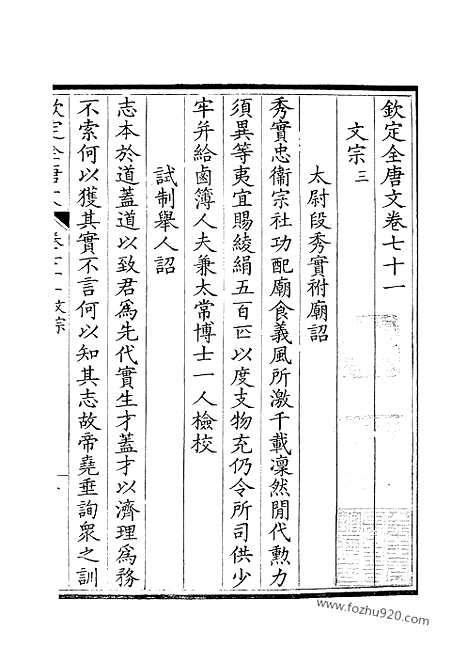 欽定全唐文卷七十一
文宗三
太尉段秀實祔廟詔
秀實忠衞宗社功配廟食義風所激千載凜然閒代勲力
須異等夷宜賜綾絹五百匹以度支物充仍令所司供少
牢并給鹵簿人夫兼太常博士一人檢校
試制舉人詔
志本於道蓋道以致君爲先代實生才蓋才以濟理爲務
不索何以獲其實不言何以知其志故帝堯垂詢衆之訓
欽定全唐文 卷七十一 文宗 一
www.fozhu920.com